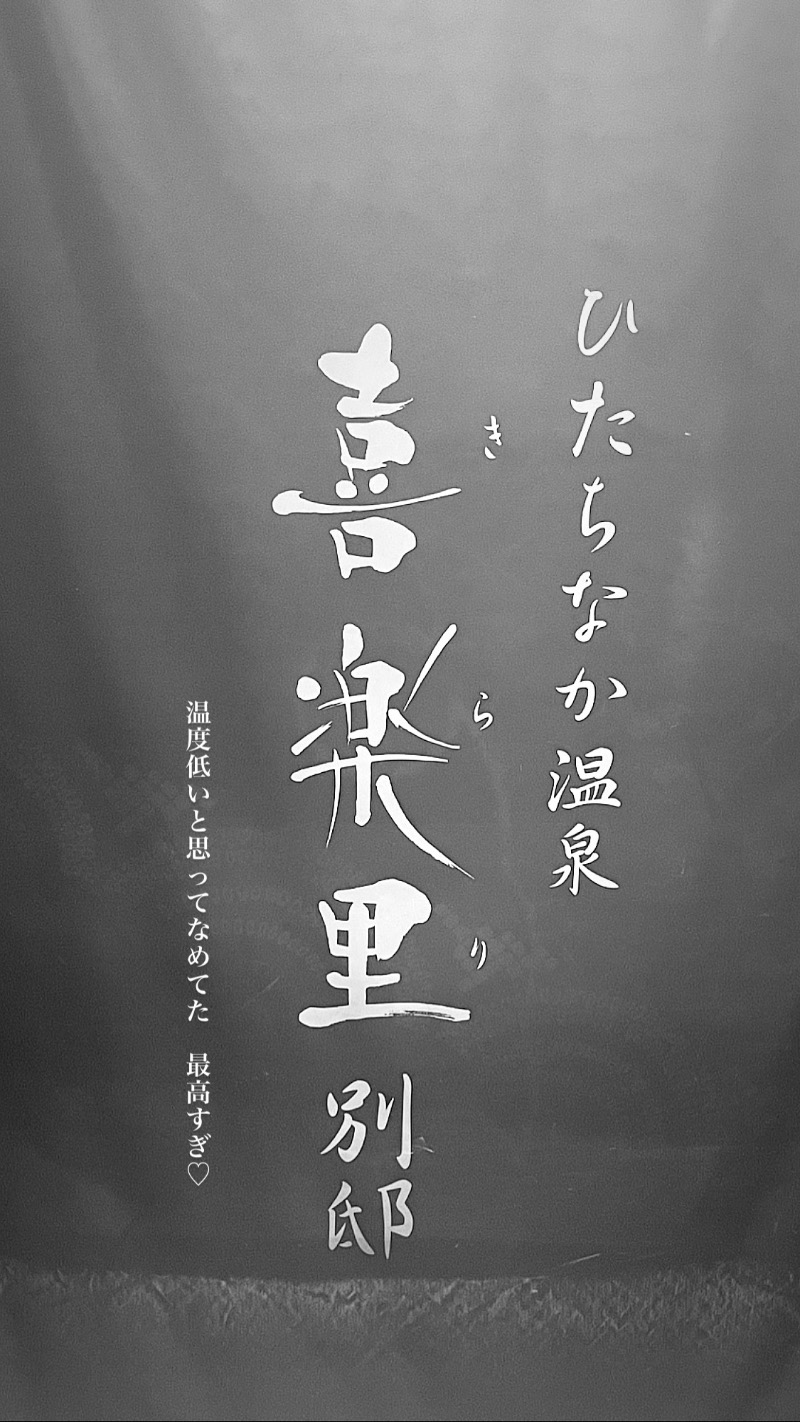 ひたちなか温泉
喜楽里別邸
きらり
温度低いと思ってなめてた　最高すぎ♡